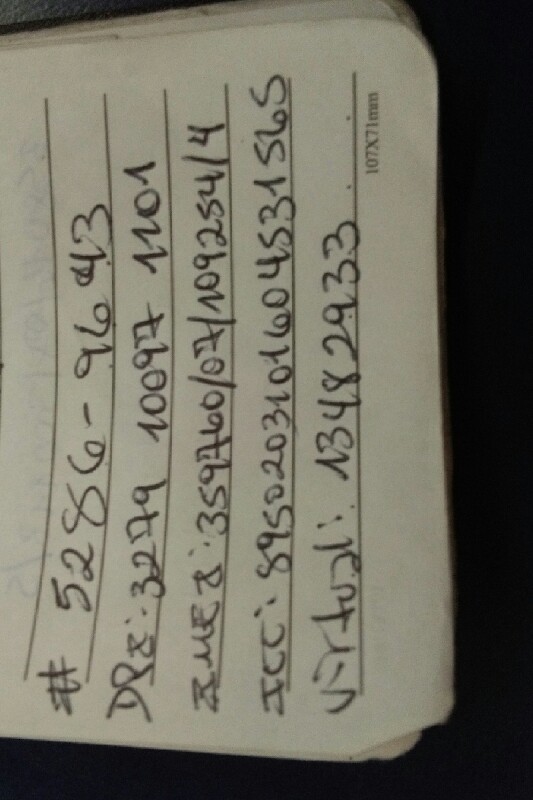 # 5286-9643
DPI: 3279 10097 1101
IMEI: 359760/07/109254/4
ICC: 8950203101604531565
Virtual: 13482933
107X71mm